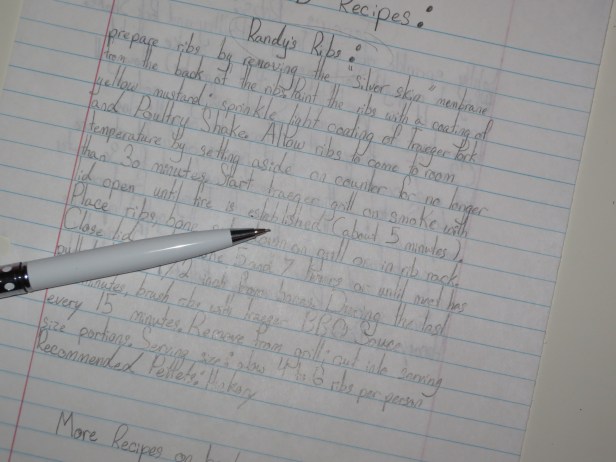 Recipes:
Randy's Ribs:
prepare ribs by removing the "silver skin" membrane
from the back of the ribs. Paint the ribs with a coating of
yellow mustard; sprinkle light coating of traeger Pork
and Poultry Shake. Allow ribs to come to room
temperature by setting aside on counter for no longer
than 30 minutes. Start traeger grill on smoke with
lid open until fire is established (about 5 minutes).
Place ribs down on grill or in rib rack.
Close lid 5 and 7 hours or until meat has
1/2 inch from bones. During the last
minutes, brush ribs with traeger BBQ Sauce
every 15 minutes. Remove from grill; cut into serving
size portions. Serving size: allow 4 to 6 ribs per person
Recommended Pellets: Hickory
More Recipes on